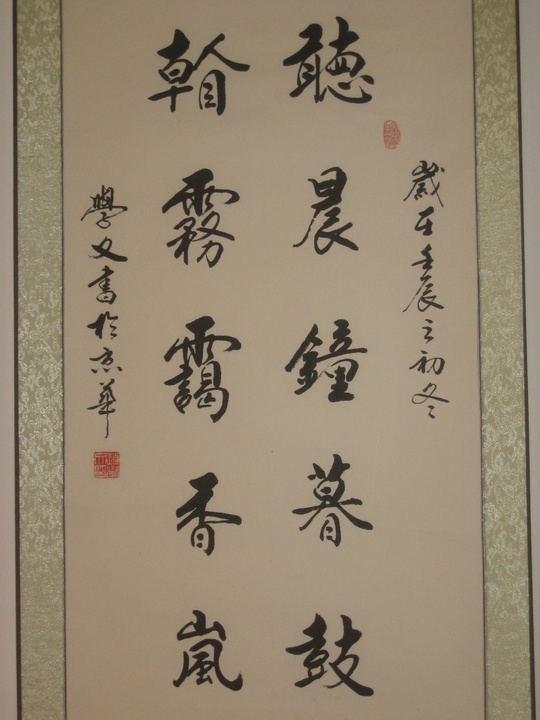 歲在壬辰之初冬
聽晨鐘暮鼓
看霧靄香嵐
學文書於京華